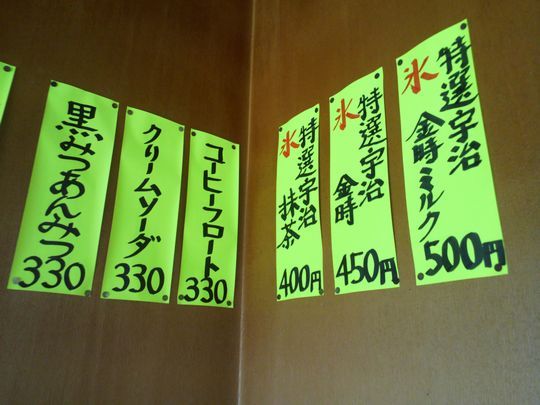 氷 特選宇治
金時ミルク
500円
氷 特選宇治
金時
450円
氷 特選宇治
抹茶
400円
コーヒーフロート
330
クリームソーダ
330
黒みつあんみつ
330